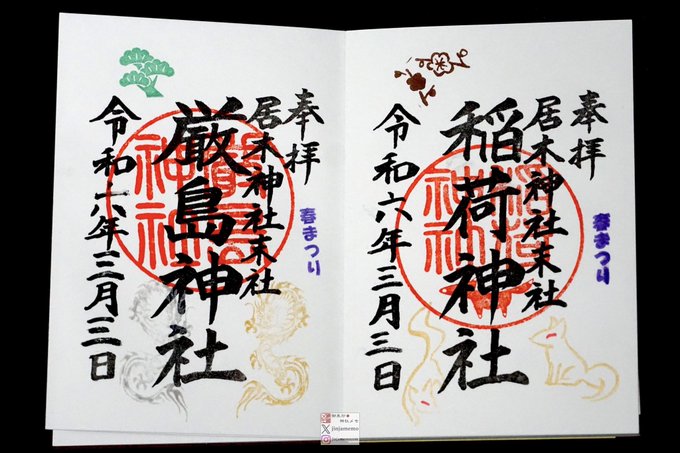 奉拝
居木神社末社
稲荷神社
令和六年三月三日
春まつり
奉拝
居木神社末社
厳島神社
令和六年三月三日
春まつり
jinjamemo